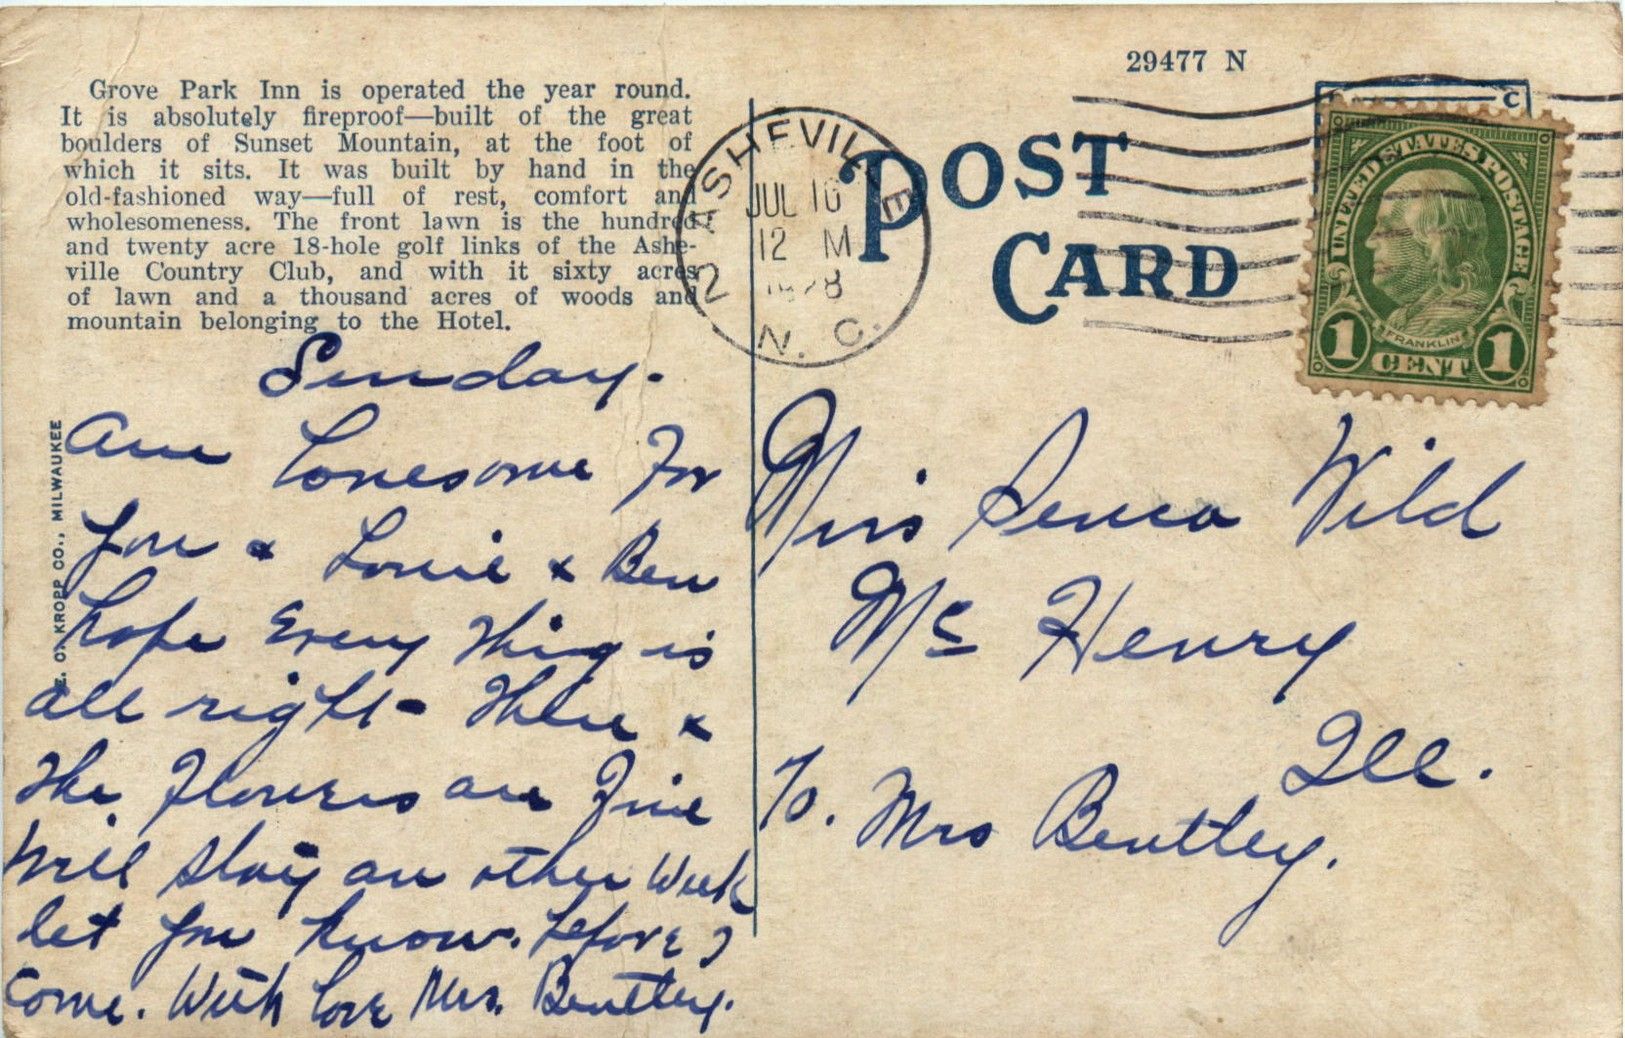 29477 N
Grove Park Inn is operated the year round.
It is absolutely fireproof—built of the great
boulders of Sunset Mountain, at the foot of
which it sits. It was built by hand in the
old-fashioned way—full of rest, comfort and
wholesomeness. The front lawn is the hundred
and twenty acre 18-hole golf links of the Ashe-
ville Country Club, and with it sixty acres
of lawn and a thousand acres of woods and
mountain belonging to the Hotel.
E. C. KROPP CO., MILWAUKEE
Sunday.
Am lonesome For
you & Louie & Ben
hope Every Thing is
all right - There &
The Flowers are Fine
Will stay an other Week
let you know. before I
Come. With love Mrs. Bentley.
ASHEVILLE
JUL 16
12 M
1928
2
N. C.
POST
CARD
C
UNITED STATES POSTAGE
FRANKLIN
1 CENT 1
Miss Wild
Mc Henry
Ill.
To. Mrs Bentley.